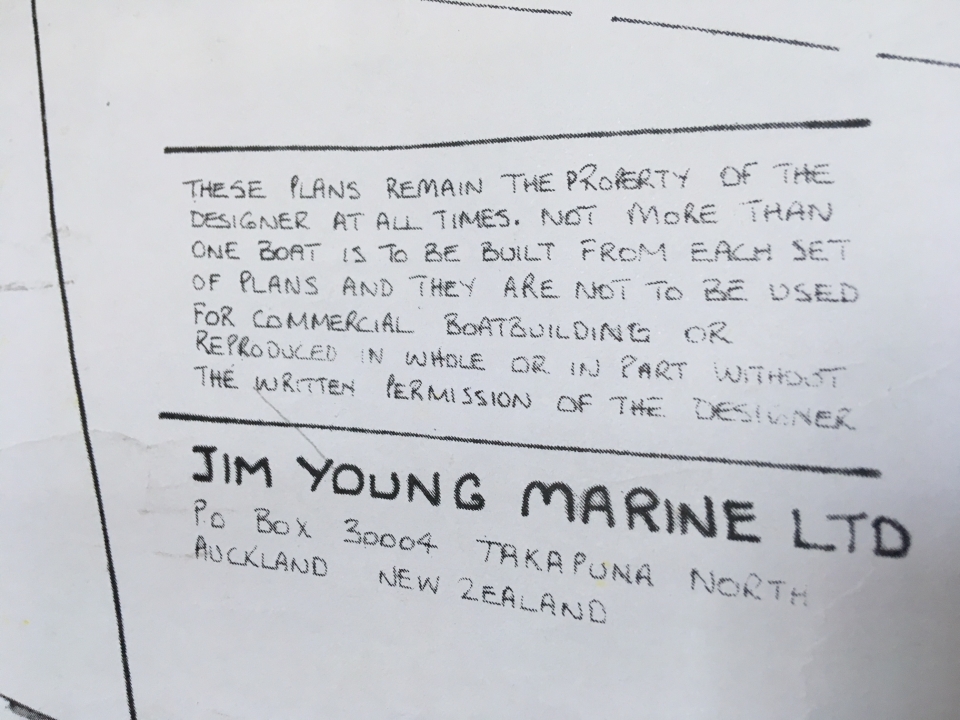 THESE PLANS REMAIN THE PROPERTY OF THE
DESIGNER AT ALL TIMES. NOT MORE THAN
ONE BOAT IS TO BE BUILT FROM EACH SET
OF PLANS AND THEY ARE NOT TO BE USED
FOR COMMERCIAL BOATBUILDING OR
REPRODUCED IN WHOLE OR IN PART WITHOUT
THE WRITTEN PERMISSION OF THE DESIGNER
JIM YOUNG MARINE LTD
P.O BOX 30004 TAKAPUNA NORTH
AUCKLAND NEW ZEALAND